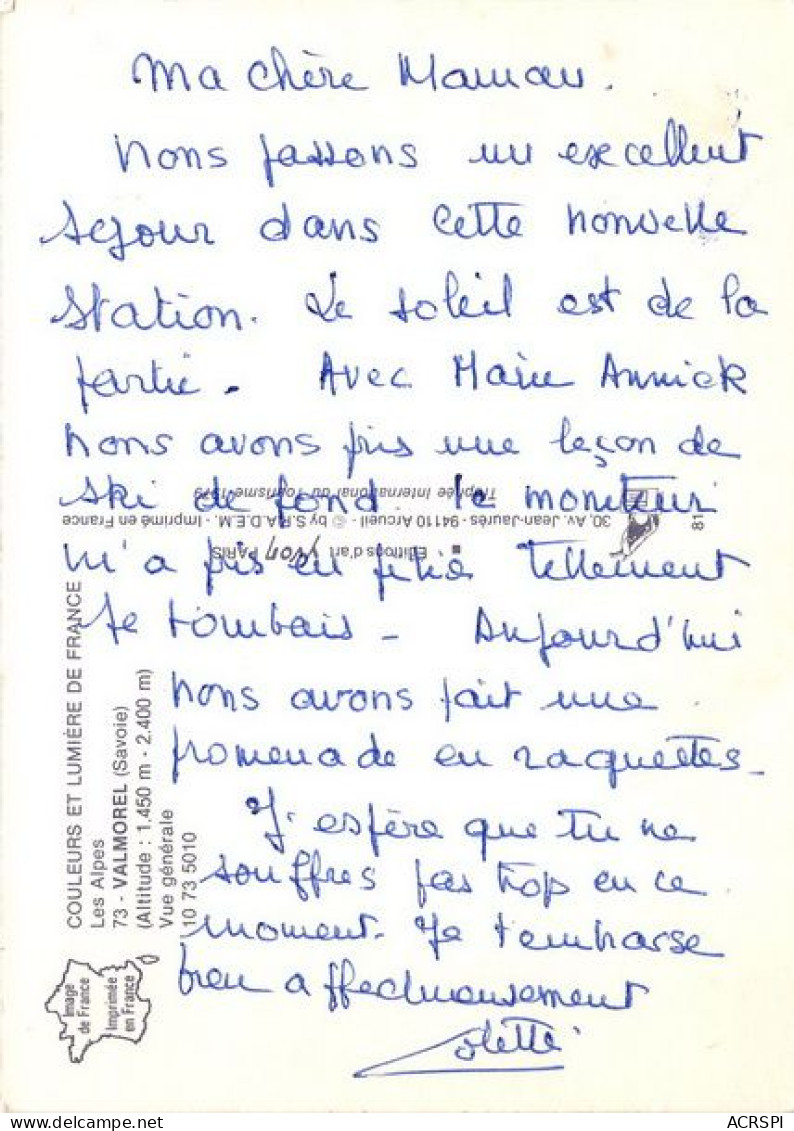 Ma chère Maman.
Nous passons un excellent
sejour dans cette nouvelle
station. Le soleil est de la
partie. Avec Marie Annick
nous avons pris une leçon de
ski de fond. le moniteur
m'a pris en pitié tellement
je tombais - Aujourd'hui
nous avons fait une
promenade en raquettes -
J'espère que tu ne
souffres pas trop en ce
moment. Je t'embrasse
bien affectueusement
Colette
COULEURS ET LUMIÈRE DE FRANCE
Les Alpes
73 - VALMOREL (Savoie)
(Altitude : 1.450 m - 2.400 m)
Vue générale
10 73 5010
Image
de France
Imprimée
en France
■ Editions d'art yvon PARIS
30, Av. Jean-Jaurès - 94110 Arcueil - © by S.P.A.D.E.M. - Imprimé en France
Trophée International du Tourisme 1979
81
ACRSPI